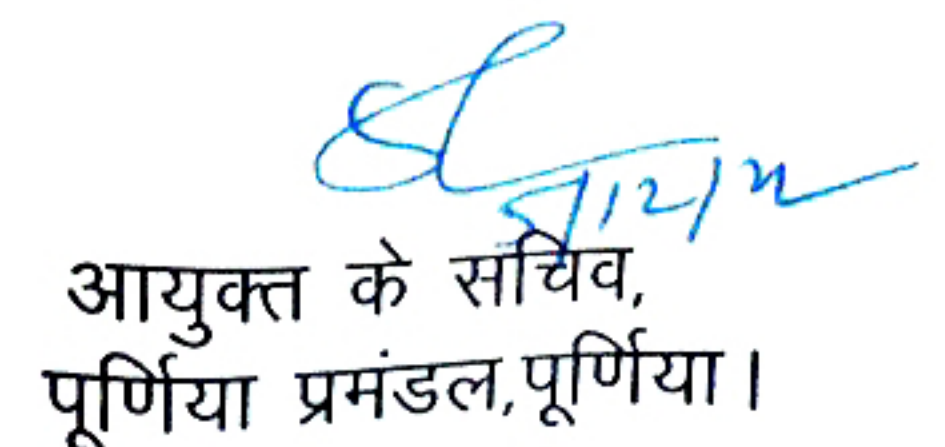 आयुक्त के सचिव,
पूर्णिया प्रमंडल,पूर्णिया।